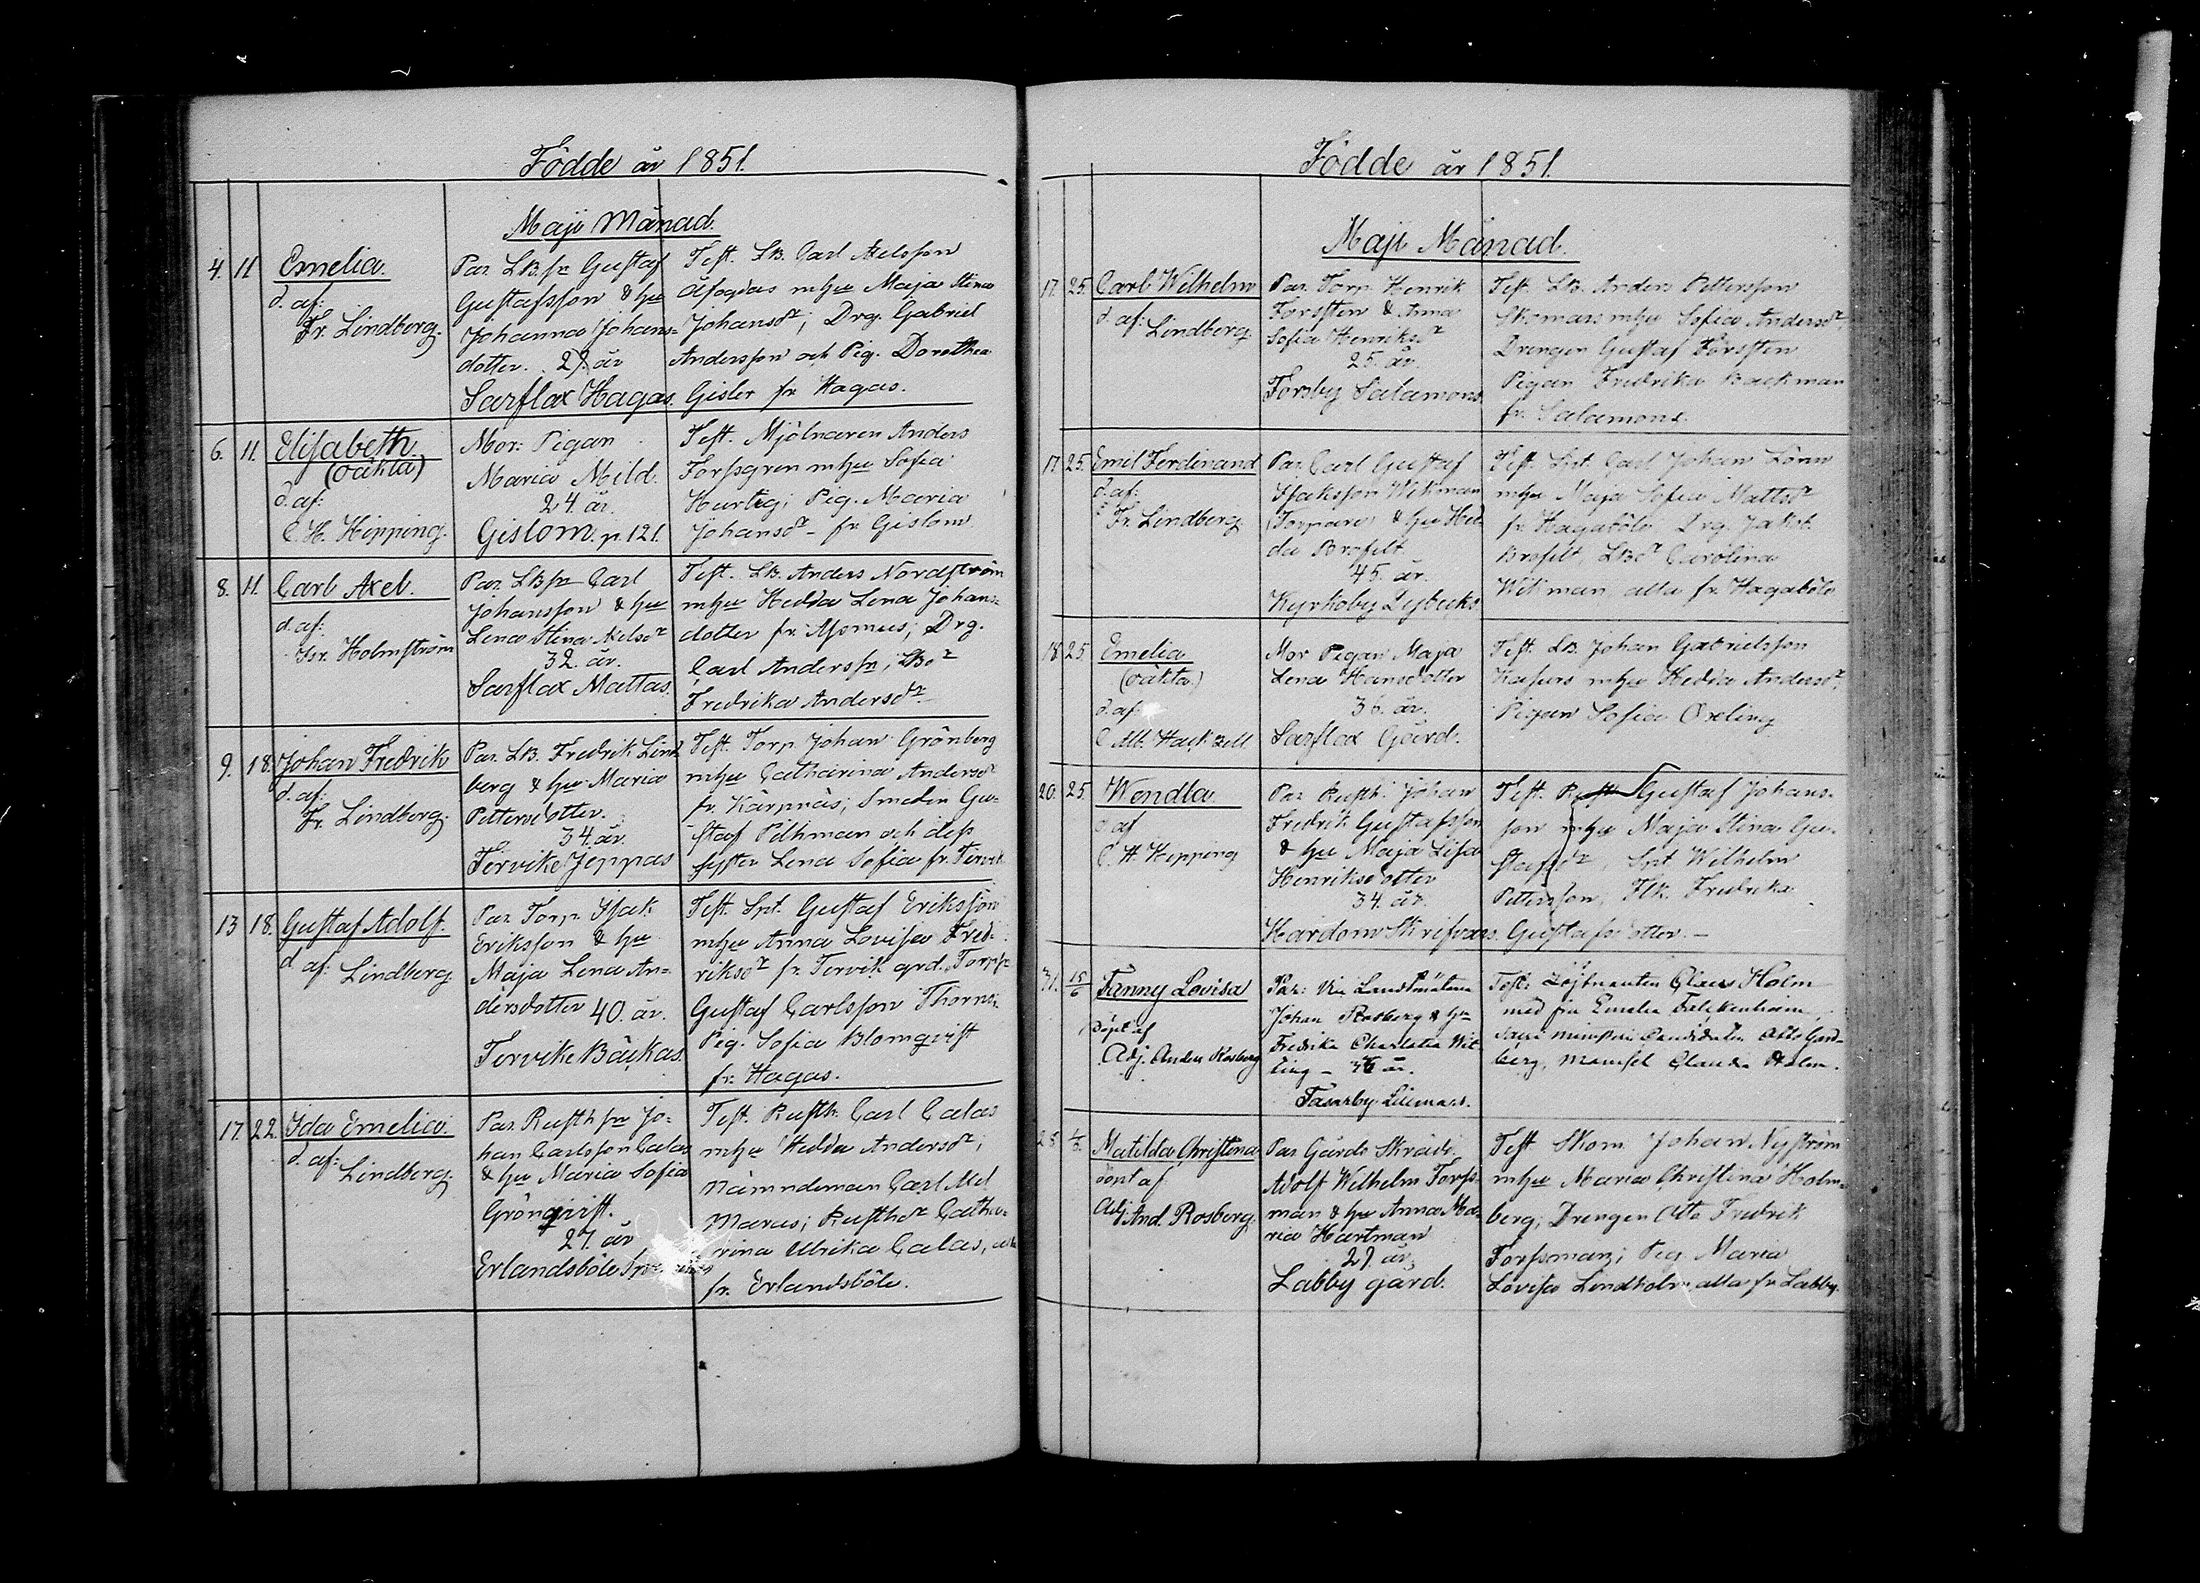 Födde år 1851.
Maji Månad.
4. 11 Emelia.
d. af:
Fr. Lindberg.
Par. LB.sn Gustaf
Gustafsson & hu
Johanna Johans-
dotter. 29. år
Sarflax Hagas.
Test. LB. Carl Axelsson
mhu Maja Stina
Johansdr; Drg. Gabriel
Andersson och Pig. Dorothea
Gisler fr. Hagas.
6. 11. Elisabeth.
(oäkta)
d. af:
C. H. Hipping.
Mor: Pigan
Maria Mild.
24. år.
Gislom. p. 121.
Test. Mjölnaren Anders
Forssgren mhu Sofia
Hurtig; Pig. Maria
Johansdr - fr Gislom
8. 11. Carl Axel.
d. af:
Holmström
Par. LBsn Carl
Johansson & hu
Lena Stina Axelsdr
32. år.
Sarflax Mattas.
Test. LB. Anders Nordström
mhu Hedda Lena Johans-
dotter fr. Momus; Drg.
Carl Anderssn; LBdr
Fredrika Andersdr
9. 18. Johan Fredrik
d. af:
Fr. Lindberg.
Par. LB. Fredrik Lind-
berg & hu Maria
Pettersdotter.
34. år.
Tervike Jeppas
Test. Torp. Johan Grönberg
mhu Catharina Andersdr
fr. Kärpnäs; Smeden Gu-
staf Pihman och dess
syster Lena Sofia fr. Tervik
13 18. Gustaf Adolf.
d af: Lindberg.
Par. Torp. Isak
Eriksson & hu
Maja Lena An-
dersdotter 40. år.
Tervike Bäckas.
Test. Spt. Gustaf Eriksson
mhu Anna Lovisa Fred-
riksdr fr. Tervik grd. Torpsn
Gustaf Carlsson Thorn;
Pig. Sofia Blomqvist
fr. Hagas.
17. 22. Ida Emelia.
d. af:
Lindberg.
Par. Rusthsn Jo-
han Carlsson Calas
& hu Maria Sofia
Grönqvist.
27. år
Erlandsböle
Test. Rusth. Carl Calas
mhu Hedda Andersdr;
Nämndeman Carl Md
Marcus; Rusthdr Catha-
rina Ulrika Calas,
fr. Erlandsböle.
Födde år 1851.
Maji Månad.
17. 25. Carl Wilhelm
d. af: Lindberg
Par. Torp. Henrik
Forssten & Anna
Sofia Henriksdr
25. år.
Forsby Salamons
Test. LB. Anders Pettersson
Skomars mhu Sofia Andersdr,
Drengen Gustaf Forssten
Pigan Fredrika Backman
fr. Salamons.
17. 25. Emil Ferdinand
d. af:
Fr. Lindberg.
Par. Carl Gustaf
Isaksson Wikman
Torpare & hu Hed-
da Brofelt
45. år.
Kyrkoby Lybecks
Test. Spt. Carl Johan Lönn
mhu Maja Sofia Mattsdr
fr. Hagaböle Drg. Jakob
Brofelt, LBdr Carolina
Wikman, alla fr. Hagaböle
18 25 Emelia
(oäkta)
d. af:
C Alb. Hackzell
Mor Pigan Maja
Lena Hansdotter
36. år.
Sarflax Gård.
Test. LB. Johan Gabrielsson
Kasurs mhu Hedda Andersdr,
Pigan Sofia Oreling
20. 25. Wendla
d. af
C. H. Hipping
Par Rusth. Johan
Fredrik Gustafsson
& hu Maja Lisa
Henriksdotter
34. år.
Hardom Skrifvars.
Test. Rusth Gustaf Johans-
son mhu Maja Stina Gu-
stafsdr, Spt. Wilhelm
Pettersson, Flk. Fredrika
Gustafsdotter. -
31. 15/6 Fanny Lovisa
döpt af
Adj. Anders Rosberg
Par: Vice Landtmätaren
Johan Rosberg & hu
Fredrika Charlotta Wit-
ting - 36 år.
Fasarby Lillmars.
Test: Löjtnanten Claes Holm
med fru Emelia Falckenheim,
Candidaten Otto
berg, Mamsel Claudia Holm.
28 1/6 Matilda Christina
döpt af
Adj. And. Rosberg.
Par Gårds Skräd.
Adolf Wilhelm Forss-
man & hu Anna Ma-
ria Hartman
29 år,
Labby gård.
Test Skom. Johan Nyström
mhu Maria Christina Holm-
berg; Drengen Otto Fredrik
Forssman; Pig Maria
Lovisa Lindholm alla fr Labby.